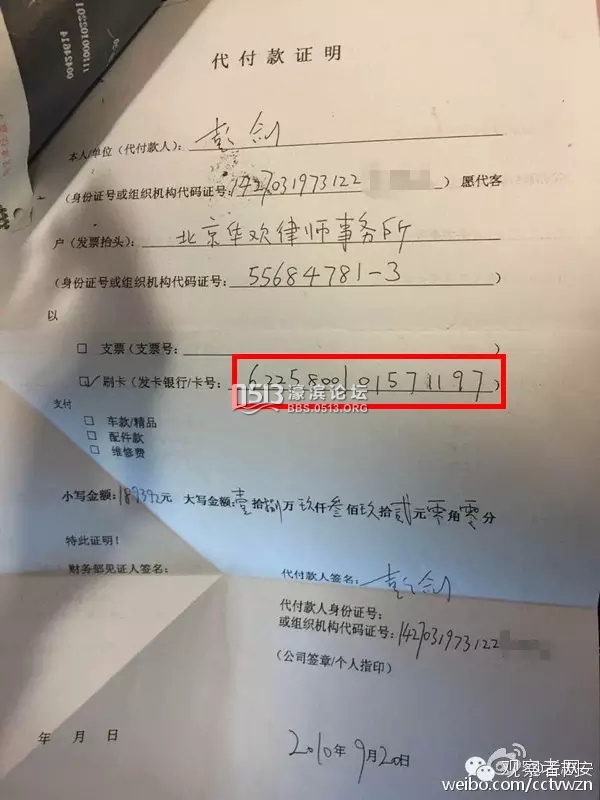 00424614
1110001022001
代付款证明
本人/单位（代付款人）：彭剑
（身份证号或组织机构代码证号：1427031973122 ）愿代客
户（发票抬头）：北京华欢律师事务所
（身份证号或组织机构代码证号：55684781-3）
以
□ 支票（支票号： ）
☑ 刷卡（发卡银行/卡号：6225800101571197）
0513 濠滨论坛
BBS.0513.ORG
支付
□ 车款/精品
□ 配件款
□ 维修费
小写金额：189392元 大写金额：壹拾捌万玖仟叁佰玖拾贰元零角零分
特此证明！
财务部见证人签名： 代付款人签名：彭剑
代付款人身份证号：
或组织机构代码证号：1427031973122
（公司签章/个人指印）
年 月 日 2010年9月20日
观察者网
weibo.com/cctvwzn